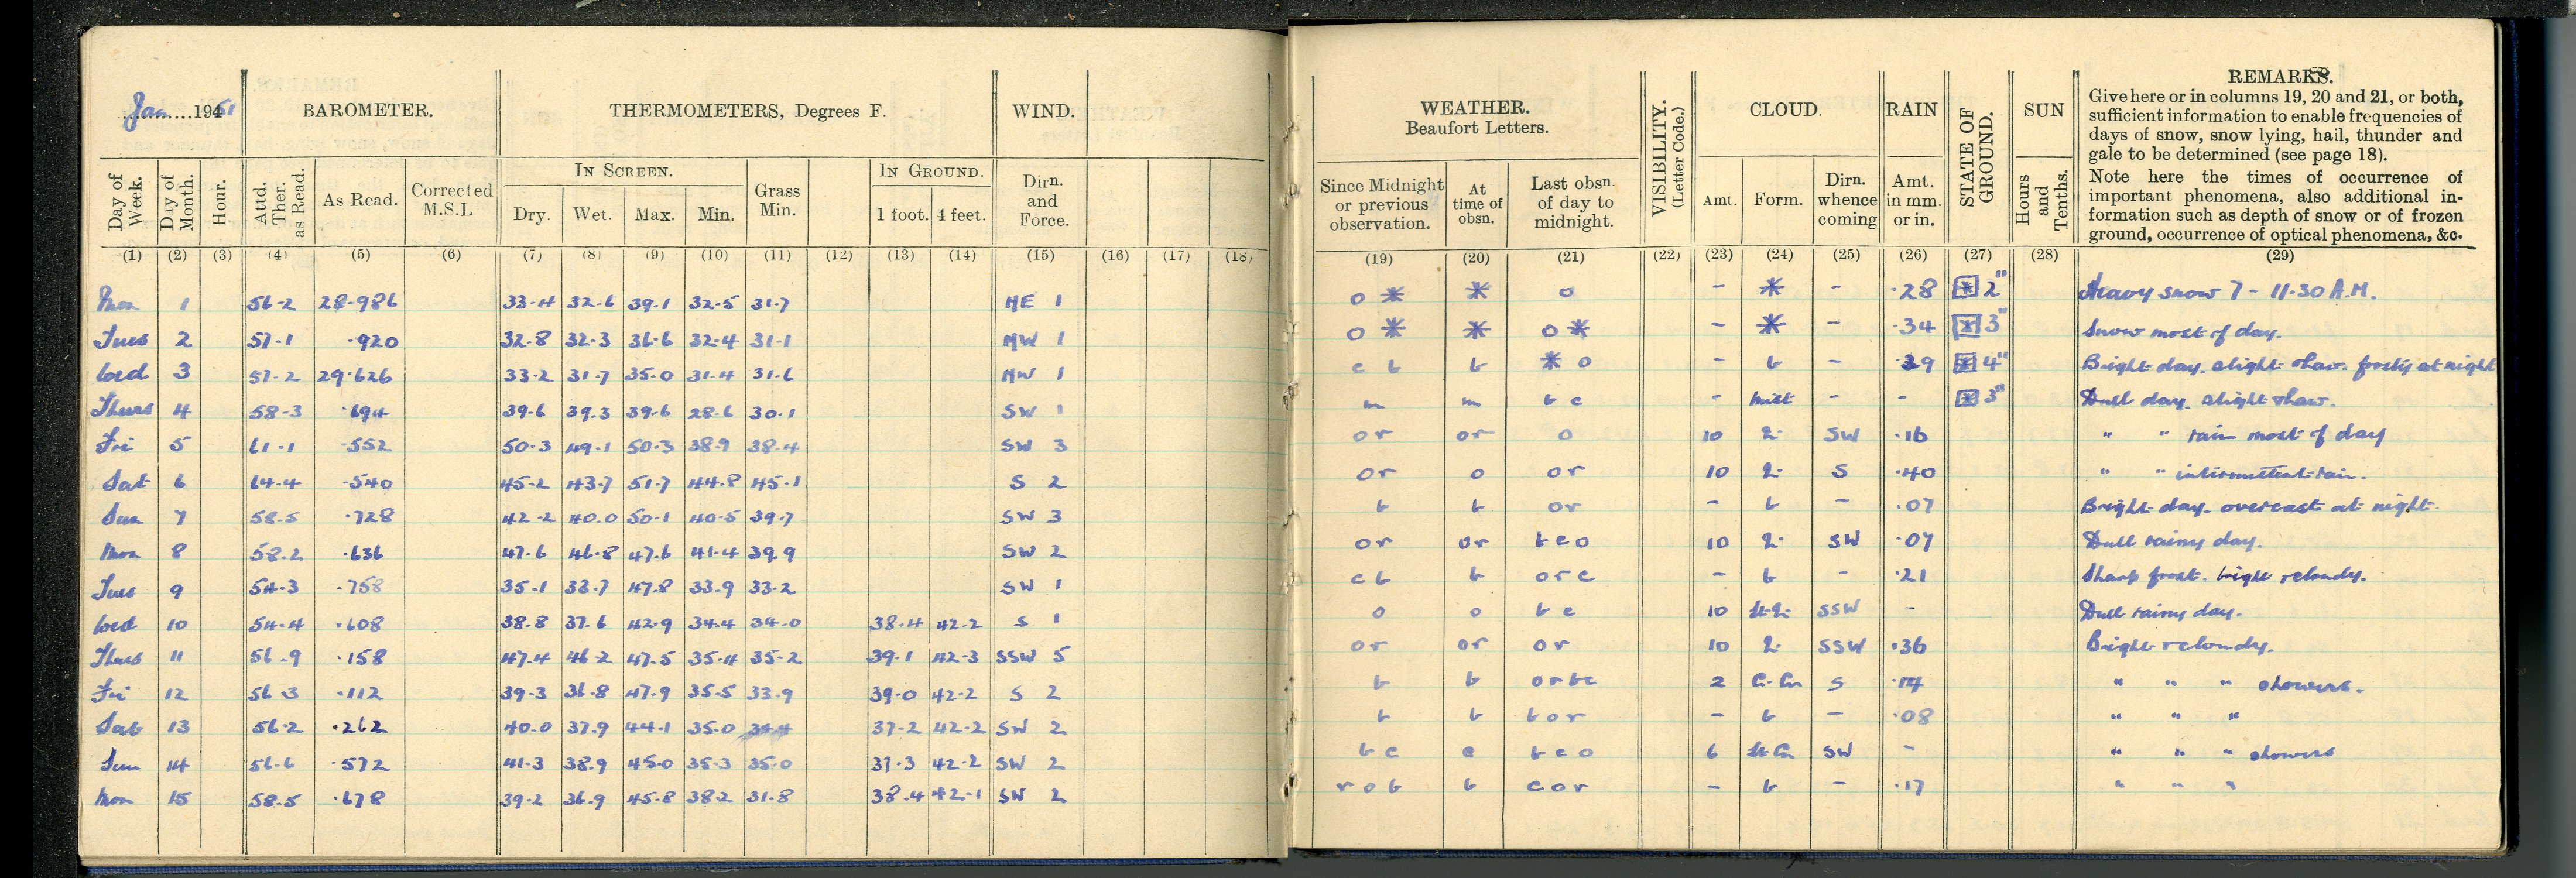 Jan 1951 BAROMETER. THERMOMETERS, Degrees F. WIND.
Day of Week. Day of Month. Hour. Attd. Ther. as Read. As Read. Corrected M.S.L IN SCREEN. Dry. Wet. Max. Min. Grass Min. IN GROUND. 1 foot. 4 feet. Dirn. and Force.
(1) (2) (3) (4) (5) (6) (7) (8) (9) (10) (11) (12) (13) (14) (15) (16) (17) (18)
Mon 1 56.2 28.986 33.4 32.6 39.1 32.5 31.7 NE 1
Tues 2 57.1 .920 32.8 32.3 36.6 32.4 31.1 NW 1
Wed 3 57.2 29.626 33.2 31.7 35.0 31.4 31.6 NW 1
Thurs 4 58.3 .694 39.6 39.3 39.6 28.6 30.1 SW 1
Fri 5 61.1 .552 50.3 49.1 50.3 38.9 38.4 SW 3
Sat 6 64.4 .540 45.2 43.7 51.7 44.8 45.1 S 2
Sun 7 58.5 .728 42.2 40.0 50.1 40.5 39.7 SW 3
Mon 8 58.2 .636 47.6 46.8 47.6 41.4 39.9 SW 2
Tues 9 54.3 .758 35.1 33.7 47.8 33.9 33.2 SW 1
Wed 10 54.4 .608 38.8 37.6 42.9 34.4 34.0 38.4 42.2 S 1
Thurs 11 56.9 .158 47.4 46.2 47.5 35.4 35.2 39.1 42.3 SSW 5
Fri 12 56.3 .112 39.3 36.8 47.9 35.5 33.9 39.0 42.2 S 2
Sat 13 56.2 .262 40.0 37.9 44.1 35.0 37.2 42.2 SW 2
Sun 14 56.6 .572 41.3 38.9 45.0 35.3 35.0 37.3 42.2 SW 2
Mon 15 58.5 .678 39.2 36.9 45.8 38.2 31.8 38.4 42.1 SW 2
WEATHER. Beaufort Letters. VISIBILITY. (Letter Code.) CLOUD. RAIN STATE OF GROUND. SUN REMARKS.
Give here or in columns 19, 20 and 21, or both,
sufficient information to enable frequencies of
days of snow, snow lying, hail, thunder and
gale to be determined (see page 18).
Note here the times of occurrence of
important phenomena, also additional in-
formation such as depth of snow or of frozen
ground, occurrence of optical phenomena, &c.
Since Midnight or previous observation. At time of obsn. Last obsn. of day to midnight. Amt. Form. Dirn. whence coming Amt. in mm. or in. Hours and Tenths.
(19) (20) (21) (22) (23) (24) (25) (26) (27) (28) (29)
o * * o - * - .28 * 2" Heavy snow 7 - 11.30 A.M.
o * * o * - * - .34 * 3" Snow most of day.
c b b * o - b - .29 * 4" Bright day. slight thaw. frosty at night
m m b c - mist - - * 3" Dull day. slight thaw.
or or o 10 SW .16 " " rain most of day
or o or 10 S .40 " " intermittent rain.
b b or - b - .07 Bright day. overcast at night.
or or b c o 10 SW .07 Dull rainy day.
c b b o r c - b - .21 Sharp frost. bright & cloudy.
o o b c 10 SSW - Dull rainy day.
or or or 10 SSW .36 Bright & cloudy.
b b o r b c 2 S .14 " " " showers.
b b b o r - b - .08 " " "
b c c b c o 6 SW - " " " showers
r o b b c o r - b - .17 " " "